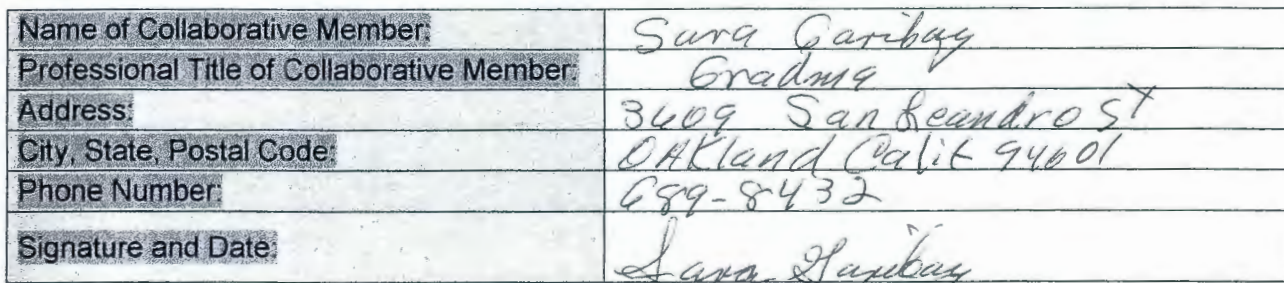 Name of Collaborative Member: Sara Garibay
Professional Title of Collaborative Member: Gradma
Address: 3609 San Leandro St
City, State, Postal Code: OAKland Calif 94601
Phone Number: 689-8432
Signature and Date: Sara Garibay